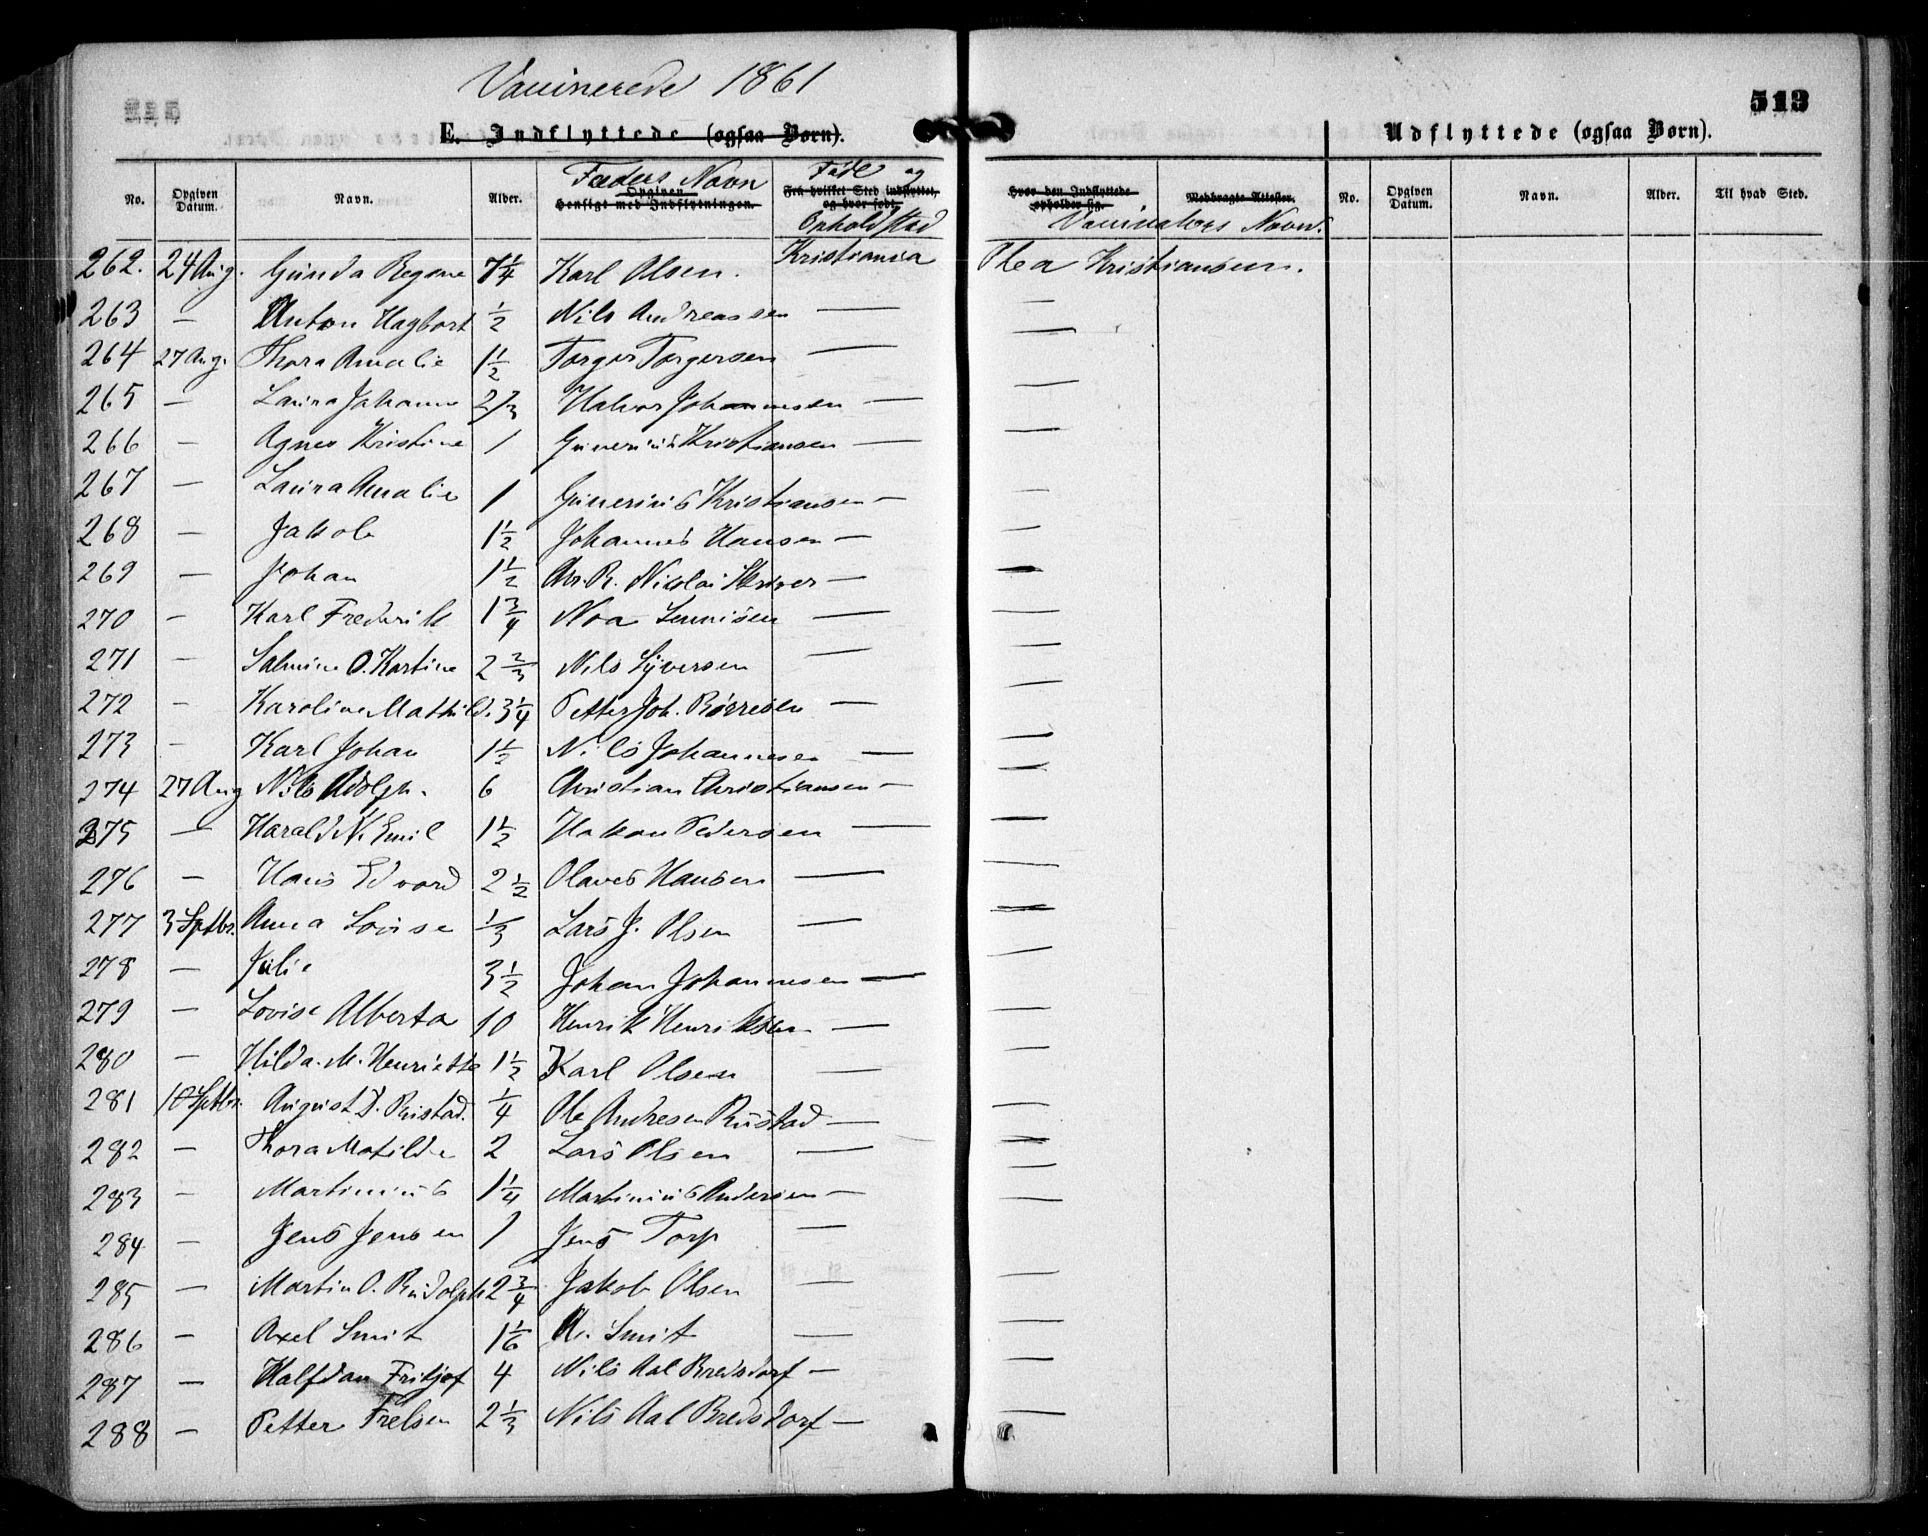 Vaccinerede 1861
513
E. Indflyttede (ogsaa Børn).
Udflyttede (ogsaa Børn).
No. Opgiven Datum. Navn. Alder. Opgiven Hensigt med Indflytningen. Fra hvilket Sted indflyttet, og hvor født. Hvor den Indflyttede opholder sig. Medbragte Attester. No. Opgiven Datum. Navn. Alder. Til hvad Sted.
Faders Navn Føde og Opholdsted Vaccinators Navn.
262. 24 Aug. Gunda Regine 7 1/4 Karl Olsen. Kristiania Olea Kristiansen.
263 — Anton Hagbart 1/2 Nils Andreassen — —
264 27 Aug. Thora Amalie 1 1/2 Torger Torgersen — —
265 — Laura Johanne 2/3 Halvor Johannesen — —
266 — Agnes Kristine 1 Gunerius Kristiansen — —
267 — Laura Amalie 1 Gunerius Kristiansen — —
268 — Jakob 1 1/2 Johannes Hansen — —
269 — Johan 1 1/2 Chr. R. Nicolai Skriver — —
270 — Karl Frederik 1 3/4 Noa — —
271 — Salmine O. Kartine 2 2/3 Nils Syversen — —
272 — Karoline Mathild. 3 1/4 Petter Joh. Børresen — —
273 — Karl Johan 1 1/2 Nils Johannesen — —
274 27 Aug Nils Adolph. 6 Christian Christiansen — —
275 — Harald N. Emil 1 1/2 Hakon Pedersen — —
276 — Hans Edvard 2 1/2 Olaves Hansen — —
277 3 Septbr. Anna Lovise 1/3 Lars J. Olsen — —
278 — Julie 3 1/2 Johan Johannesen — —
279 — Lovise Alberta 10 Henrik Henriksen — —
280 — Hilda. M. Henriette 1 1/2 Karl Olsen — —
281 10 Septbr. August D. Rustad. 1/4 Ole Andresen Rustad — —
282 — Thora Matilde 2 Lars Olsen — —
283 — Martinius 1 1/4 Martinius Andersen — —
284 — Jens Jensen 1 Jens Torp — —
285 — Martin O. Rudolph 2 3/4 Jakob Olsen — —
286 — Axel Smit 1 1/6 A. Smit — —
287 — Halfdan Fritjof 4 Nils Aal Bredsdorf — —
288 — Petter Frelsen 2 1/3 Nils Aal Bredsdorf — —